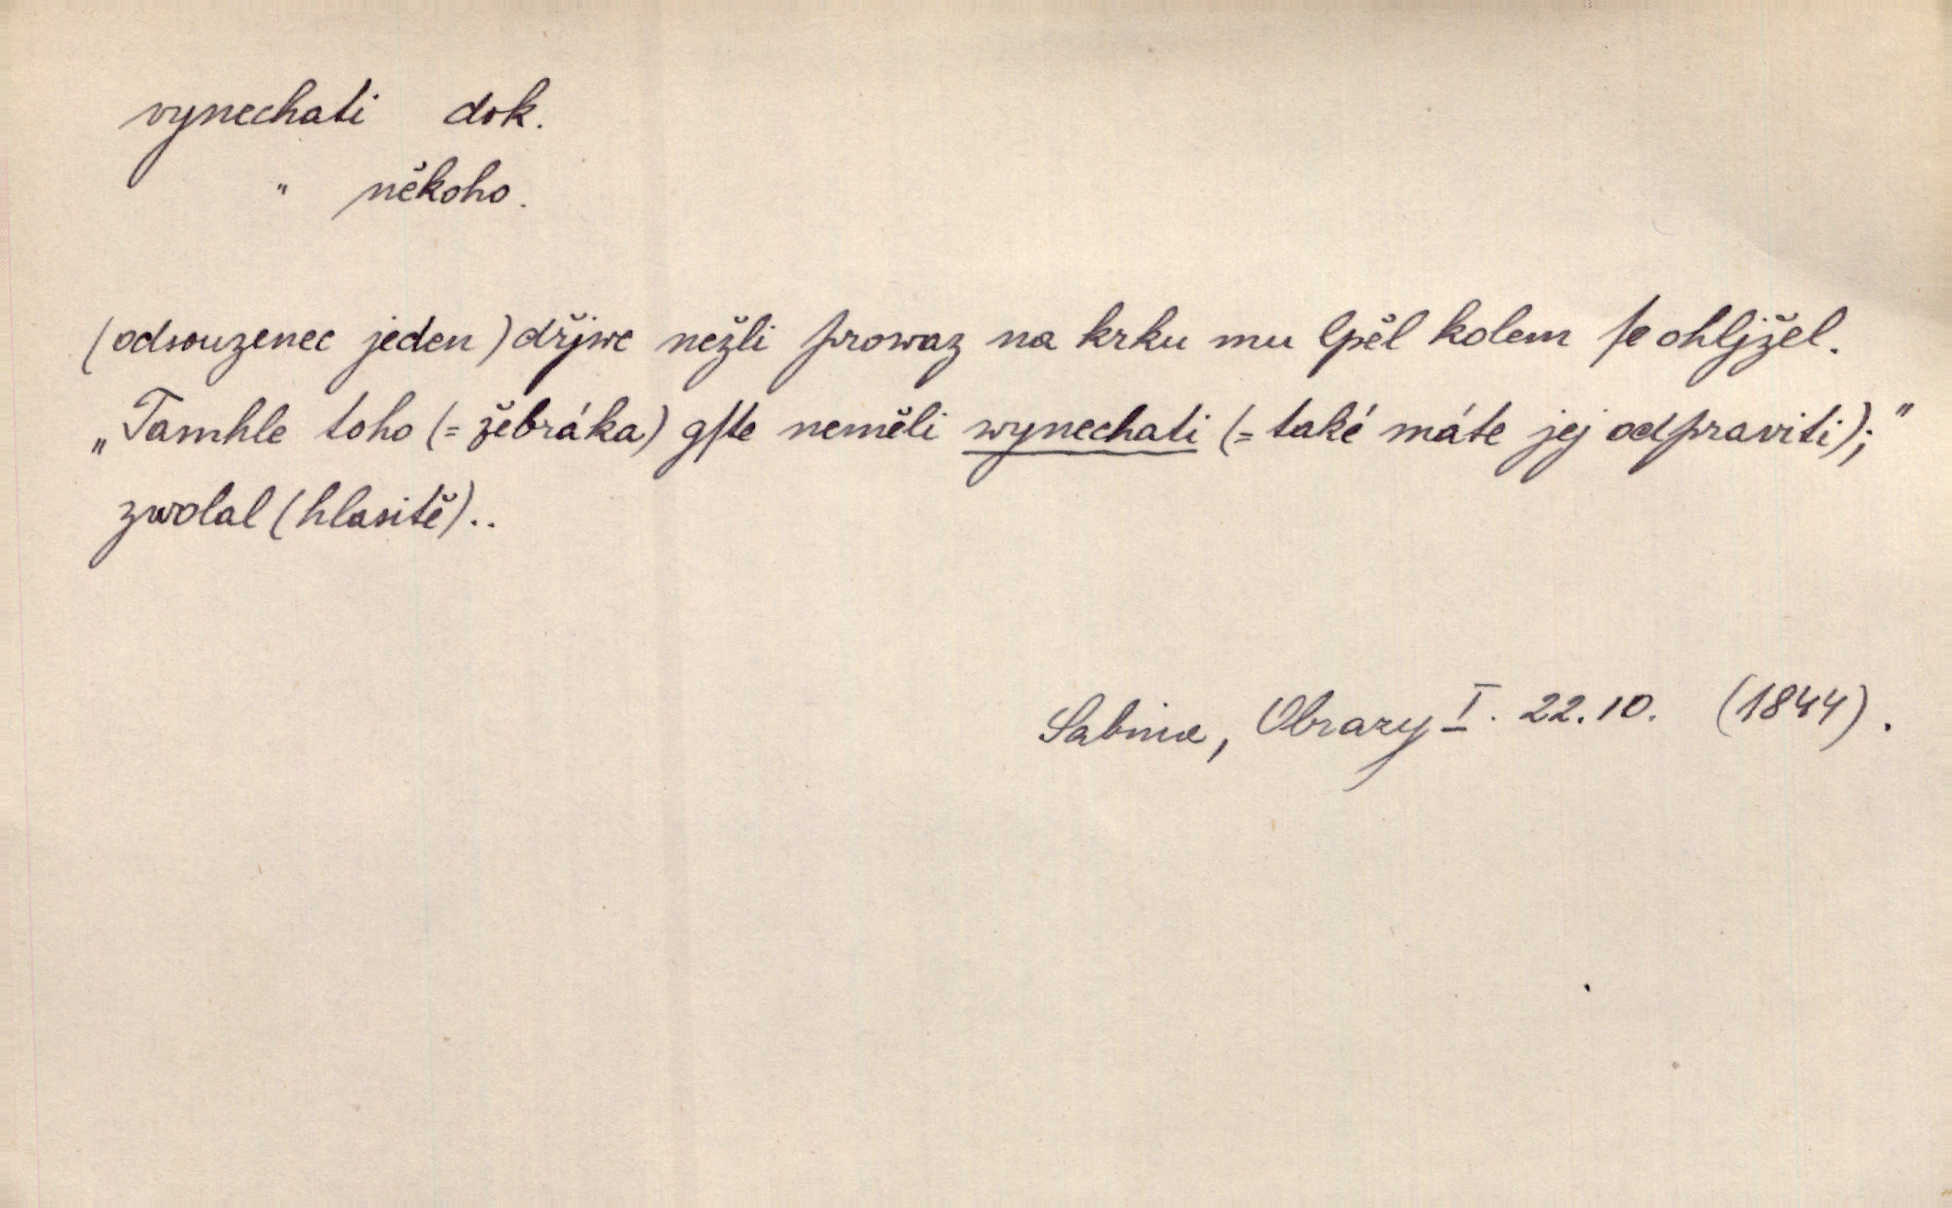 vynechati dok.
" někoho.
(odsouzenec jeden) dřjwe nežli prowaz na krku mu lpěl kolem ſe ohljžel.
„Tamhle toho (= žebráka) gſte neměli wynechati (= také máte jej odpraviti);"
zwolal (hlasitě)..
Sabina, Obrazy I. 22.10. (1844).